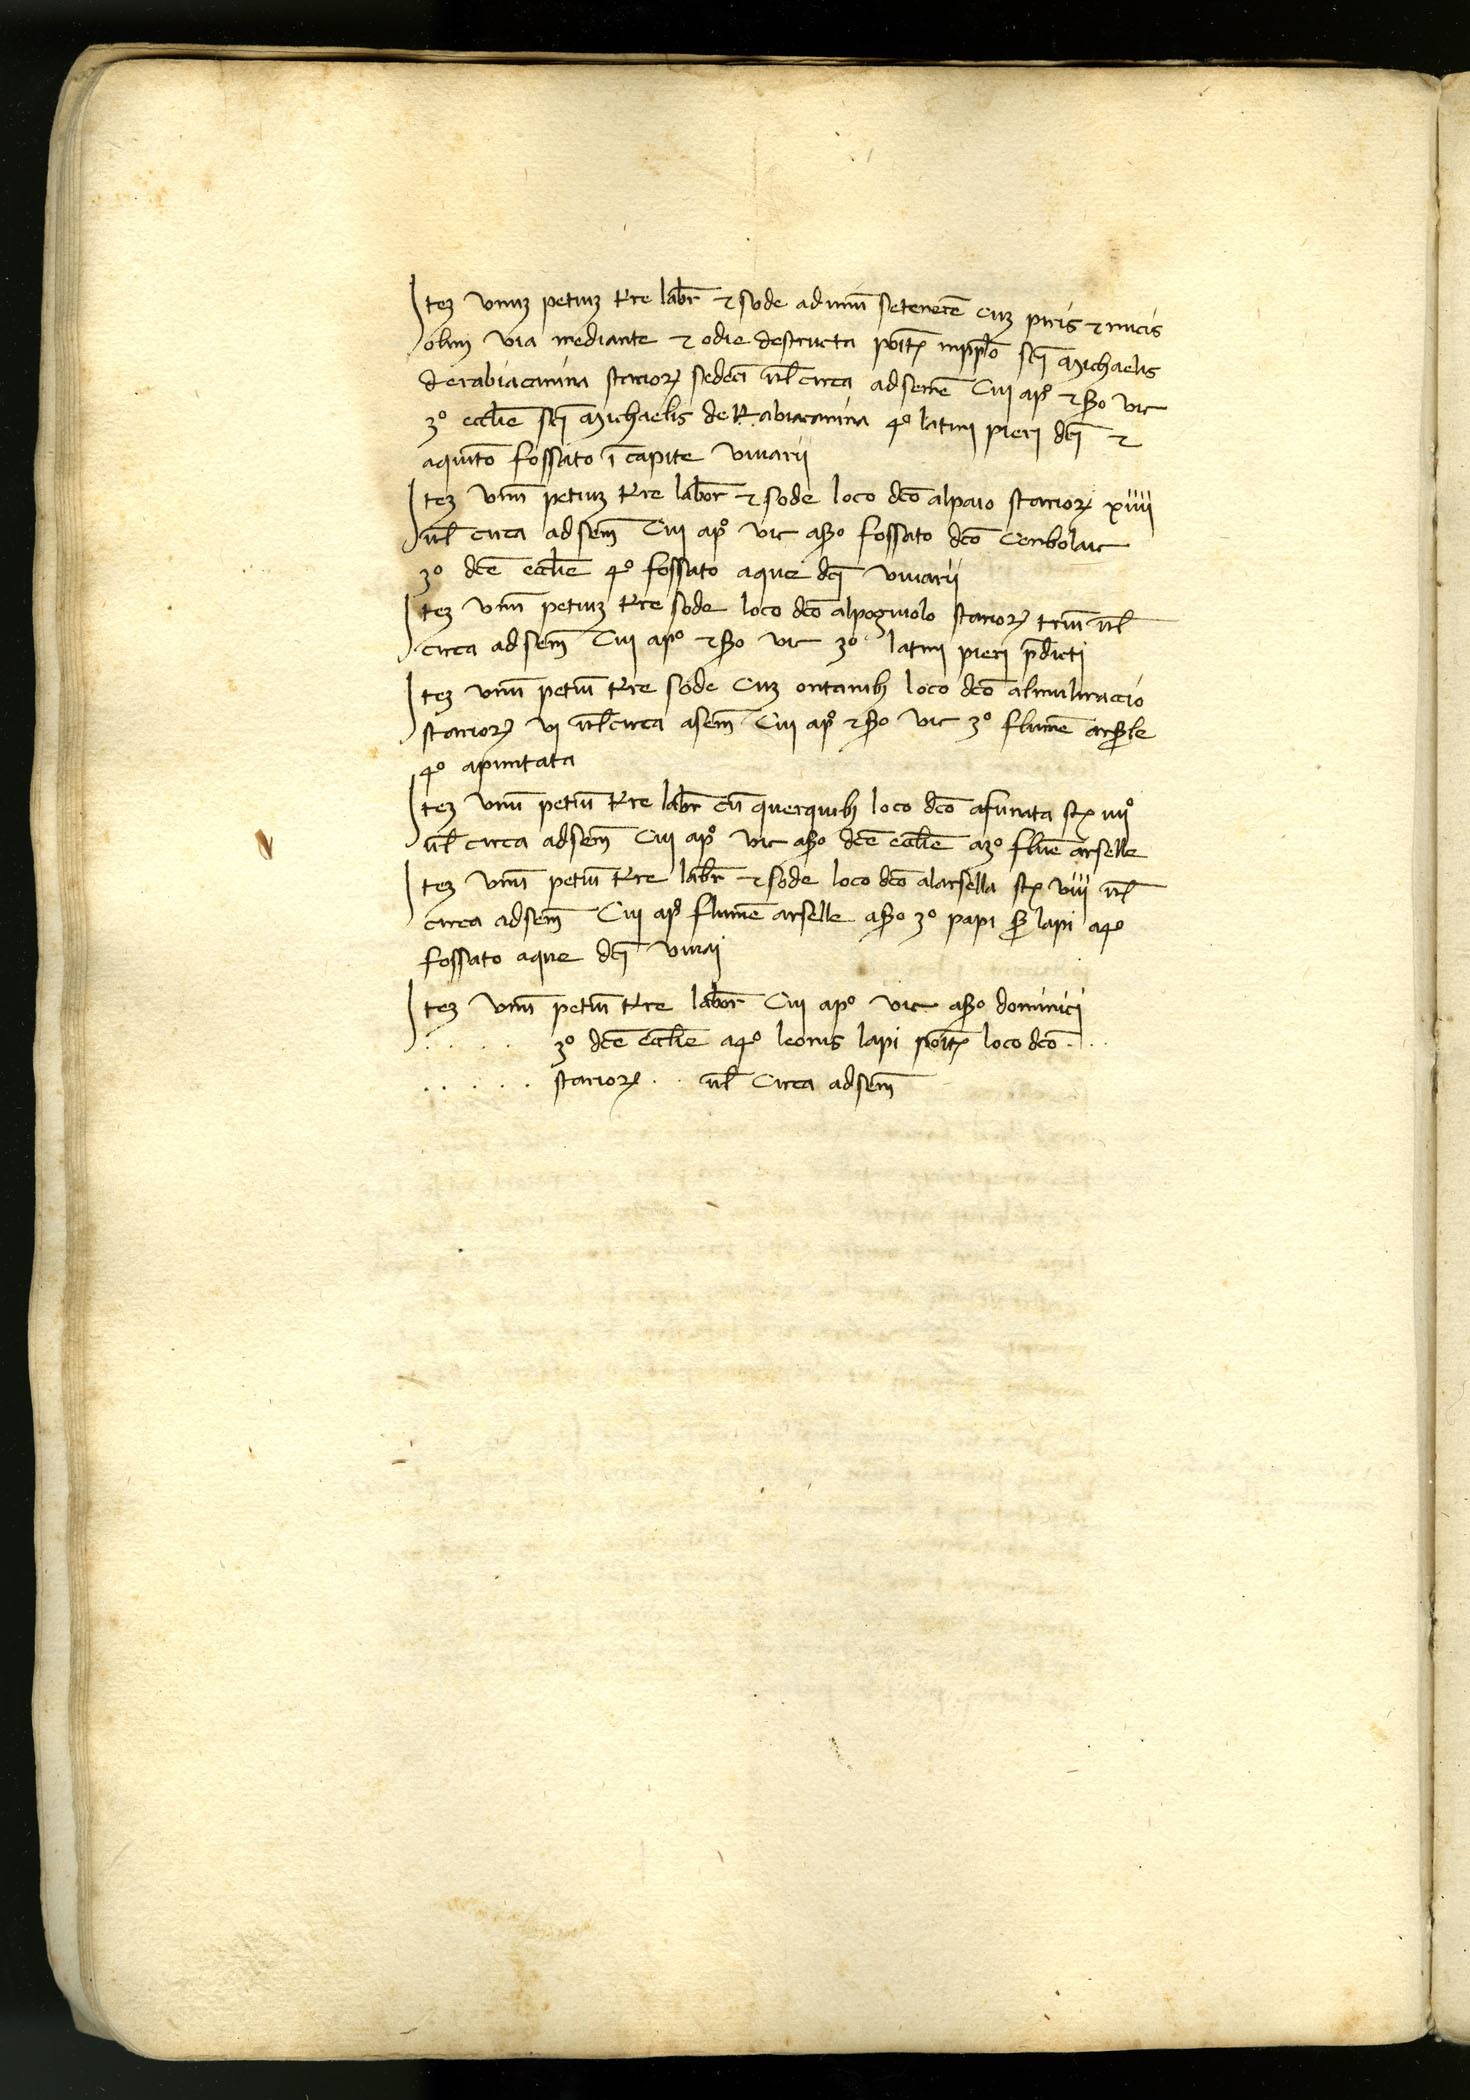 Item unuz petiuz tr̄re labōr ⁊ sode ad unū setenerē cuz piris ⁊ nucis
olim via mediante ⁊ odie destructa poīt inpplō sc̄i Michaelis
de rabiacanina starior̄ sedecī ul̄ circa ad semē Cui ap̊ ⁊ 2o vic
3o eccl̄ie sc̄i Michaelis de Rabiacanina 4o latini pieri dc̄i ⁊
aquinto fossato ī capite vivarii
Item unū petiuz tr̄re labōr ⁊ sode loco dc̄o alpaio starior̄ xiiii
ul̄ circa ad sem̄ Cui ap̊ vic a 2o fossato dc̄o Cerbolaie
3o dc̄e eccl̄ie 4o fossato aque dc̄i vivarii
Item unū petiuz tr̄re sode loco dc̄o alpogiuolo starior̄ triū ul̄
circa ad sem̄ Cui apo ⁊ 2o vic 3o latini pieri p̄dicti
Item unū petiū tr̄re sode cuz ontanib loco dc̄o almulinaccio
starior̄ vi ul̄ circa a sem̄ Cui ap̊ ⁊ 2o vic 3o flumē arselle
4o apuntata
Item unū petiū tr̄re labōr cū querquib loco dc̄o afunata st̄ iiiio
ul̄ circa ad sem̄ Cui ap̊ vic a 2o dc̄e eccl̄ie a 3o flūe arselle
Item unū petiū tr̄re labōr ⁊ sode loco dc̄o alarsella st̄ viii ul̄
circa ad sem̄ Cui ap̊ flumē arselle a 2o 3o papi s̄ lapi a 4o
fossato aque dc̄i vivarii
Item unū petiū tr̄re labōr Cui apo vic a 2o dominici
. . . . . 3o dc̄e eccl̄ie a 4o leonis lapi poīt loco dc̄o . . .
. . . . . starior̄ . . ul̄ circa ad sem̄